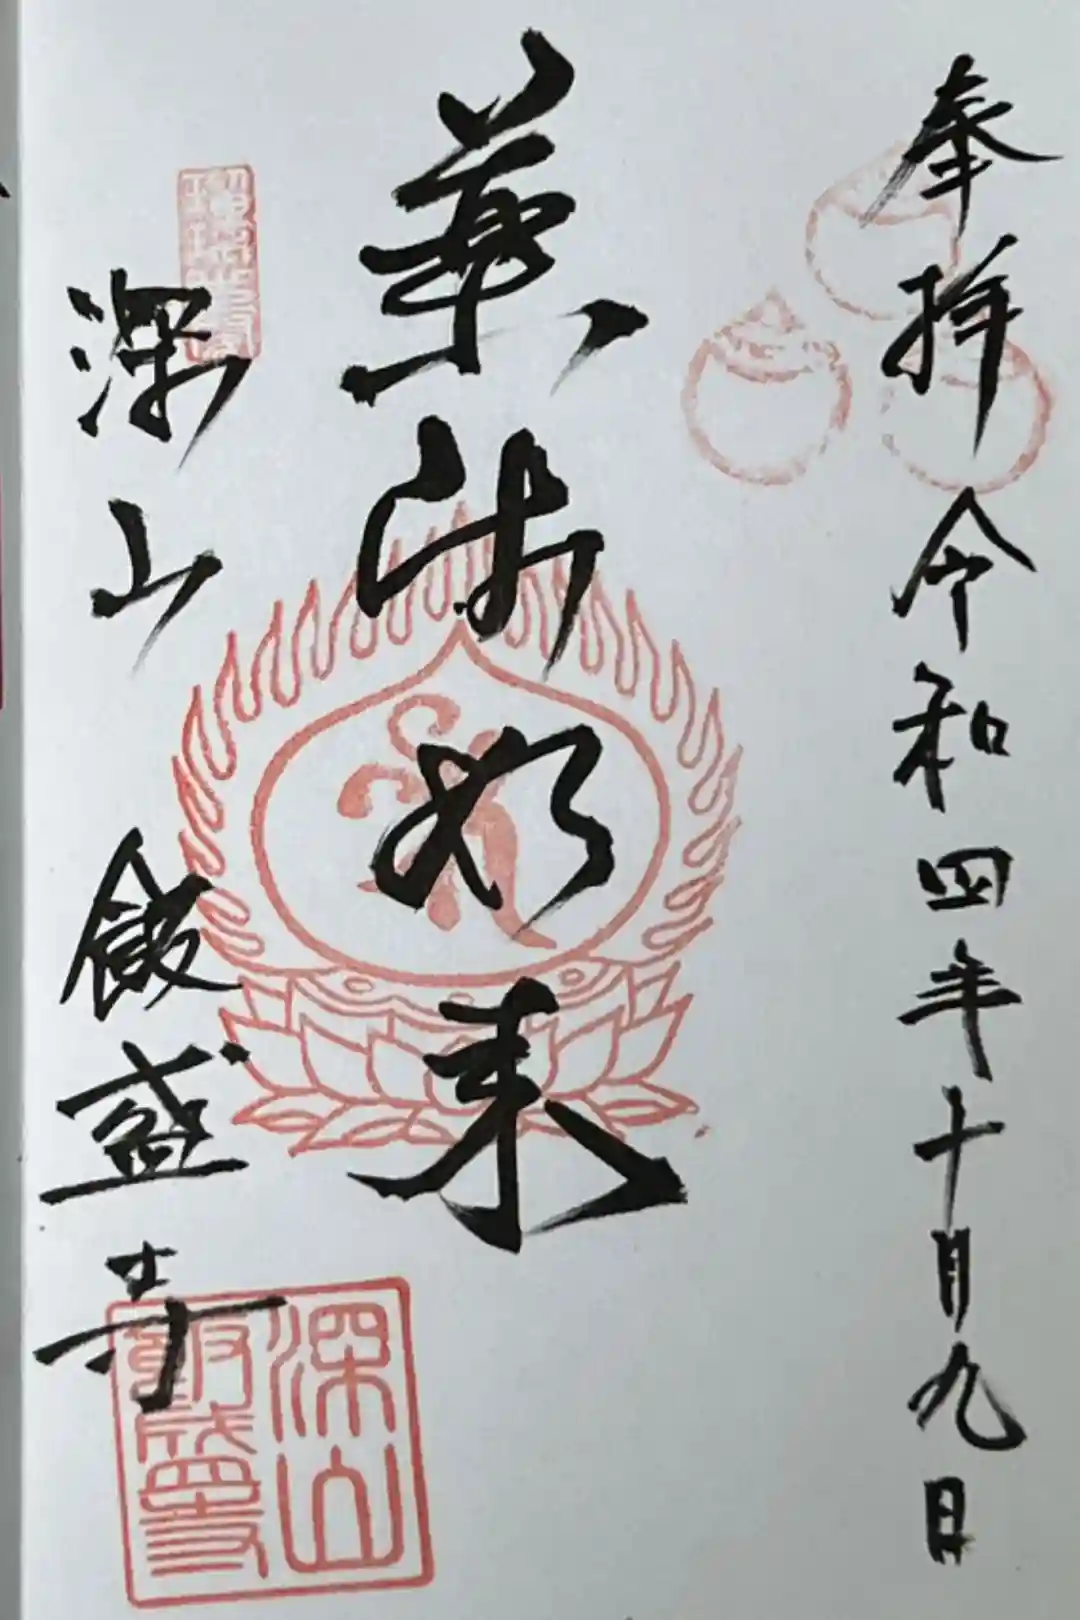 奉拝 令和四年十月九日
薬師如来
深山 飯盛寺
深山
飯盛寺